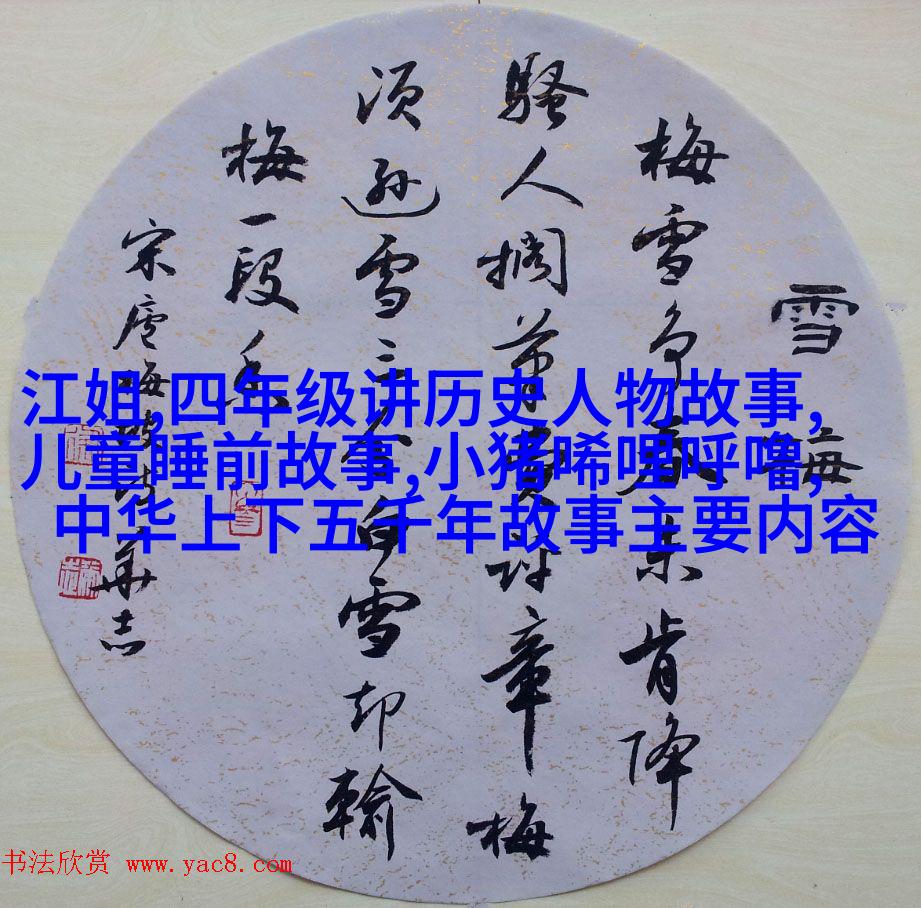 雪梅
梅雪争春未肯降
骚人搁笔费评章梅
须逊雪三分白雪却輸
梅一段香
宋卢梅坡诗华志
江姐,四年级讲历史人物故事,
儿童睡前故事,小猪唏哩呼噜,
中华上下五千年故事主要内容
书法欣赏 www.yac8.com